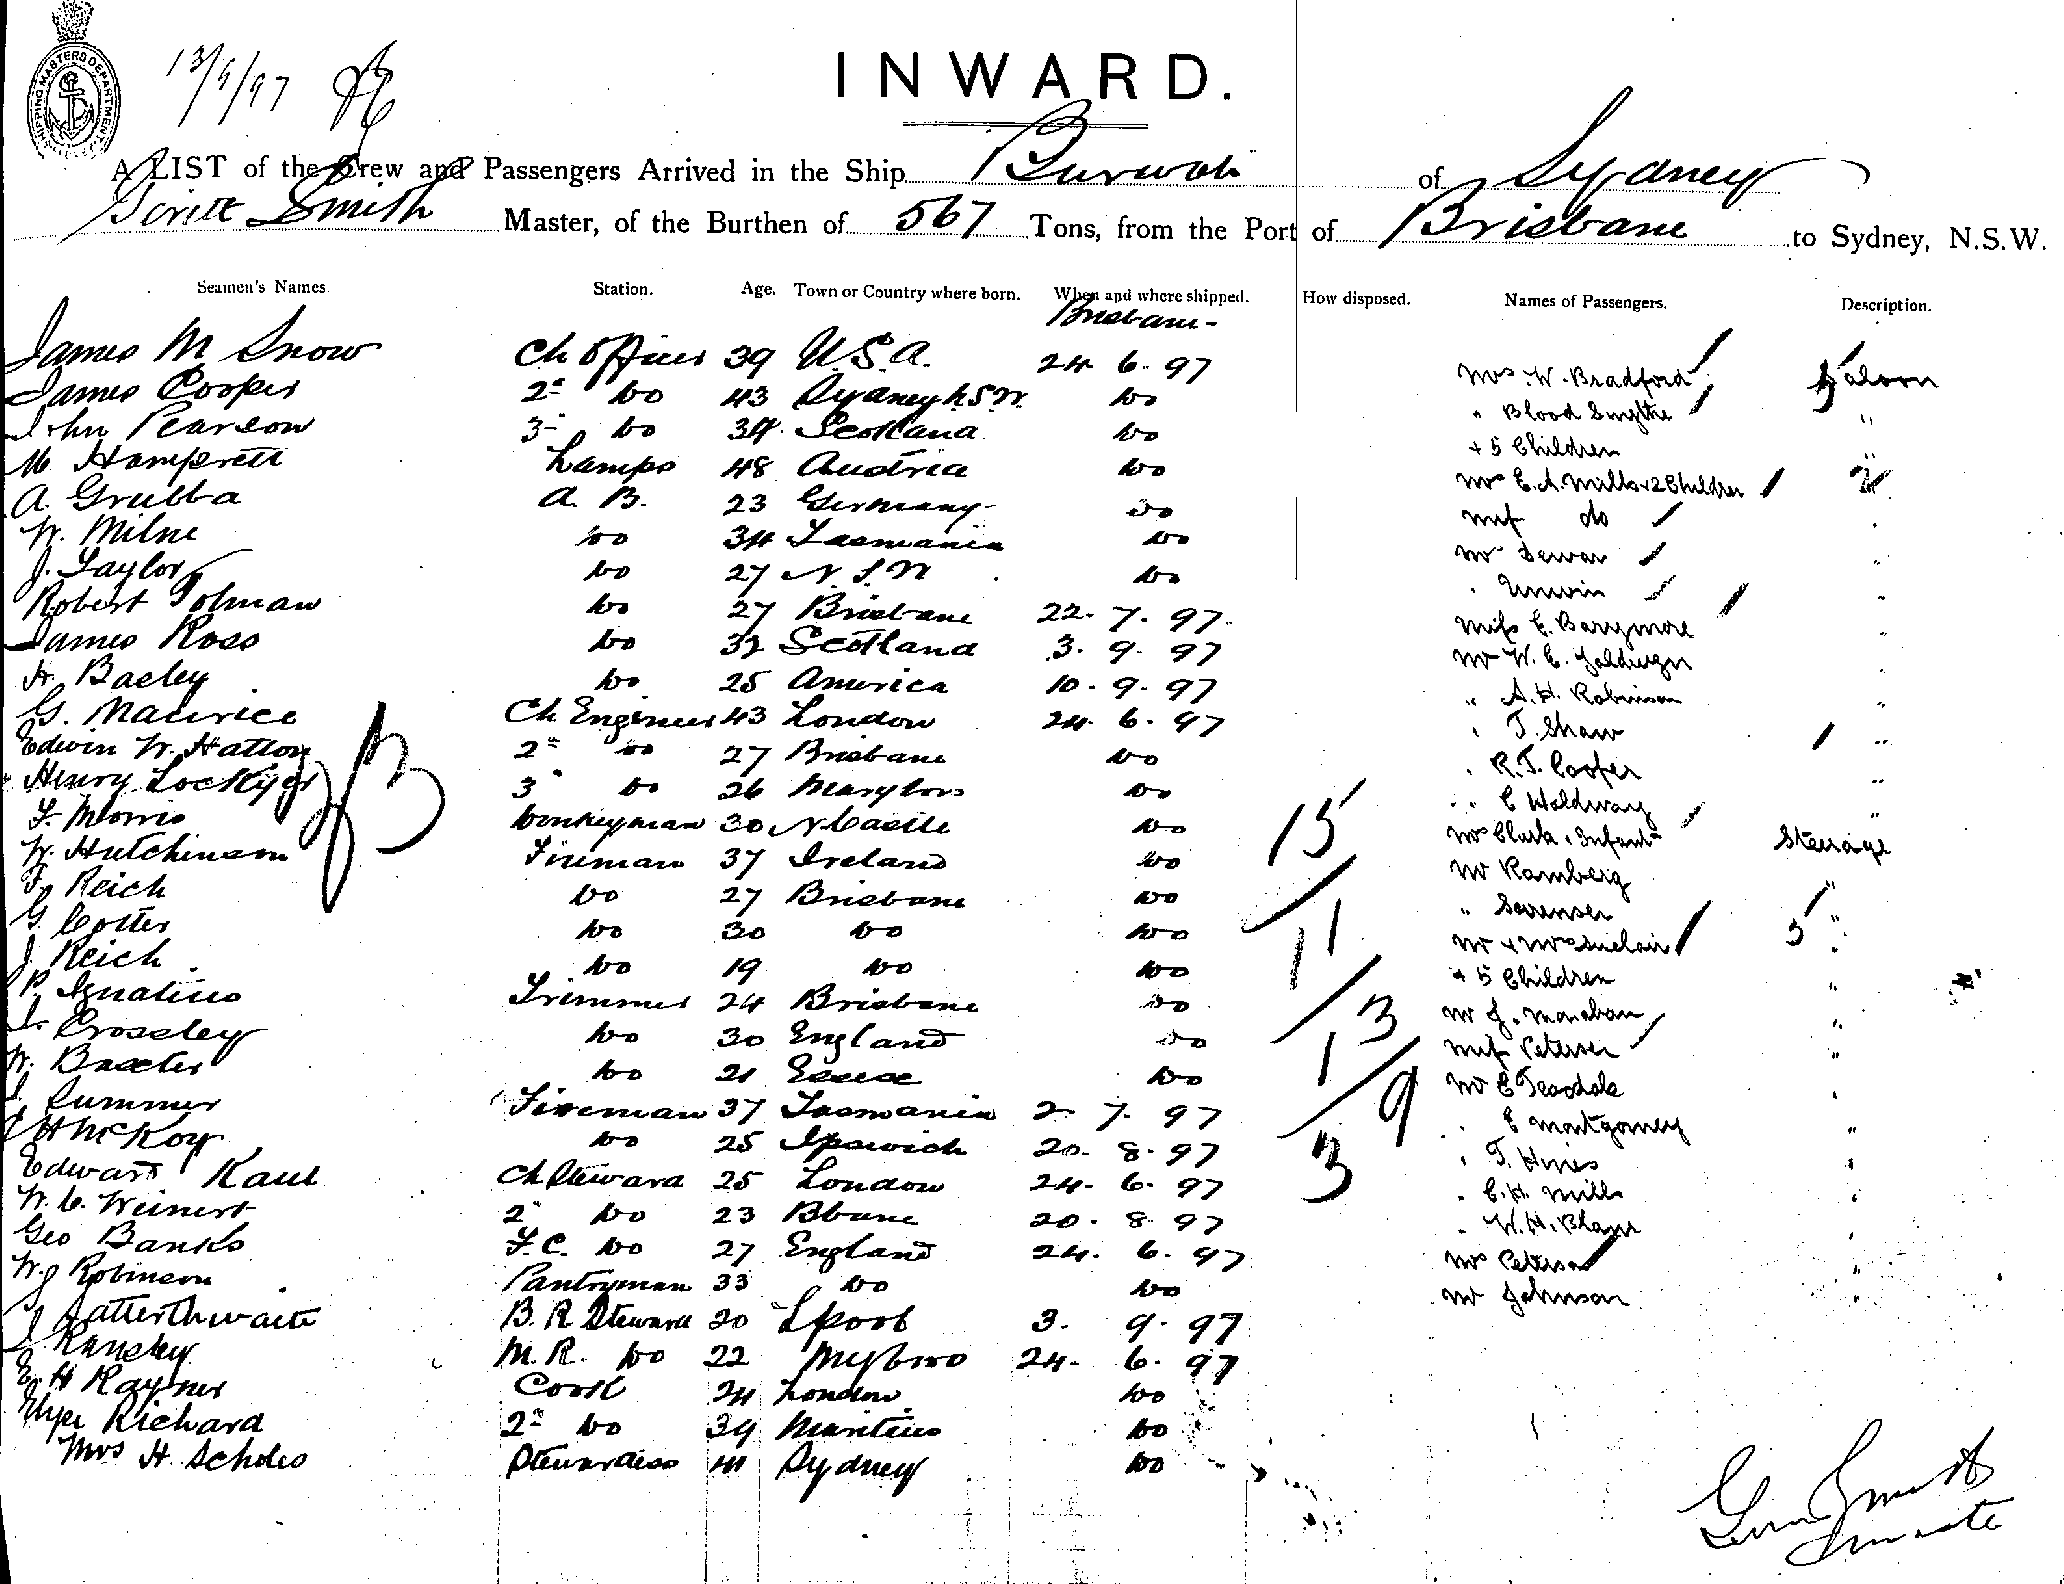 SHIPPING MASTERS DEPARTMENT
13/9/97
INWARD.
A LIST of the Crew and Passengers Arrived in the Ship Burwah of Sydney
Smith Master, of the Burthen of 567 Tons, from the Port of Brisbane to Sydney, N.S.W.
Seamen's Names Station. Age. Town or Country where born. When and where shipped. How disposed. Names of Passengers. Description.
Brisbane -
James M Snow Ch Officer 39 U.S.A. 24 6. 97 Mrs W. Bradford Saloon
James Cooper 2nd Do 43 Sydney N.S.W. Do " Blood Smythe "
John Pearson 3 Do 34 Scotland Do + 5 Children
M. Lamps 48 Austria Do Mrs E.A. Mills + 2 Children "
A. Grubba A. B. 23 Germany Do Miss do
W. Milne Do 34 Tasmania Do Mr Dewar
J. Taylor Do 27 N.S.W Do " Unwin
Robert Tolman Do 27 Brisbane 22. 7. 97. Miss E. Barrymore
James Ross Do 32 Scotland 3. 9. 97 Mr W. E.
H. Bagley Do 25 America 10. 9. 97 " A. H. Robinson "
G. Maurice Ch Engineer 43 London 24. 6. 97 " T. Shaw "
Edwin W. Hatton 2nd Do 27 Brisbane Do " R.T. Cooper "
Henry Lockyer 3 Do 26 Marybro Do " E Holdway "
F. Morris Donkeyman 30 N Castle Do Mrs Clark & Infant Steerage
W. Hutchinson Fireman 37 Ireland Do Mr Ramberg "
F. Reich Do 27 Brisbane Do " Sorensen "
G. Cotter Do 30 Do Do Mr & Mrs Sinclair "
J Reich Do 19 Do Do + 5 Children "
P Ignatius Trimmer 24 Brisbane Do Mr J. Monahan "
J. Crossley Do 30 England Do Miss Petersen "
W. Baxter Do 21 Essex Do Mr E Teasdale
J Summer Fireman 37 Tasmania 2. 7. 97 " E Montgomery "
H McKoy Do 25 Ipswich 20. 8. 97 " T. Hines "
Edward Kaul Ch Steward 25 London 24. 6. 97 " E. H. Mills "
W. C. Weinert 2 Do 23 Bbane 20. 8. 97 " W. H. Blair "
Geo Banks F.C. Do 27 England 24. 6. 97 Mrs Peterson "
W. J Robinson Pantryman 33 Do Do Mr Johnson "
J Satterthwaite B. R Steward 20 Lpool 3. 9. 97
J Ransley M. R. Do 22 Mybro 24. 6. 97
E. H Rayner Cook 24 London Do
Richard 2nd Do 39 Mauritius Do
Mrs H. Scholes Stewardess 41 Sydney Do
15
11
13
19
3